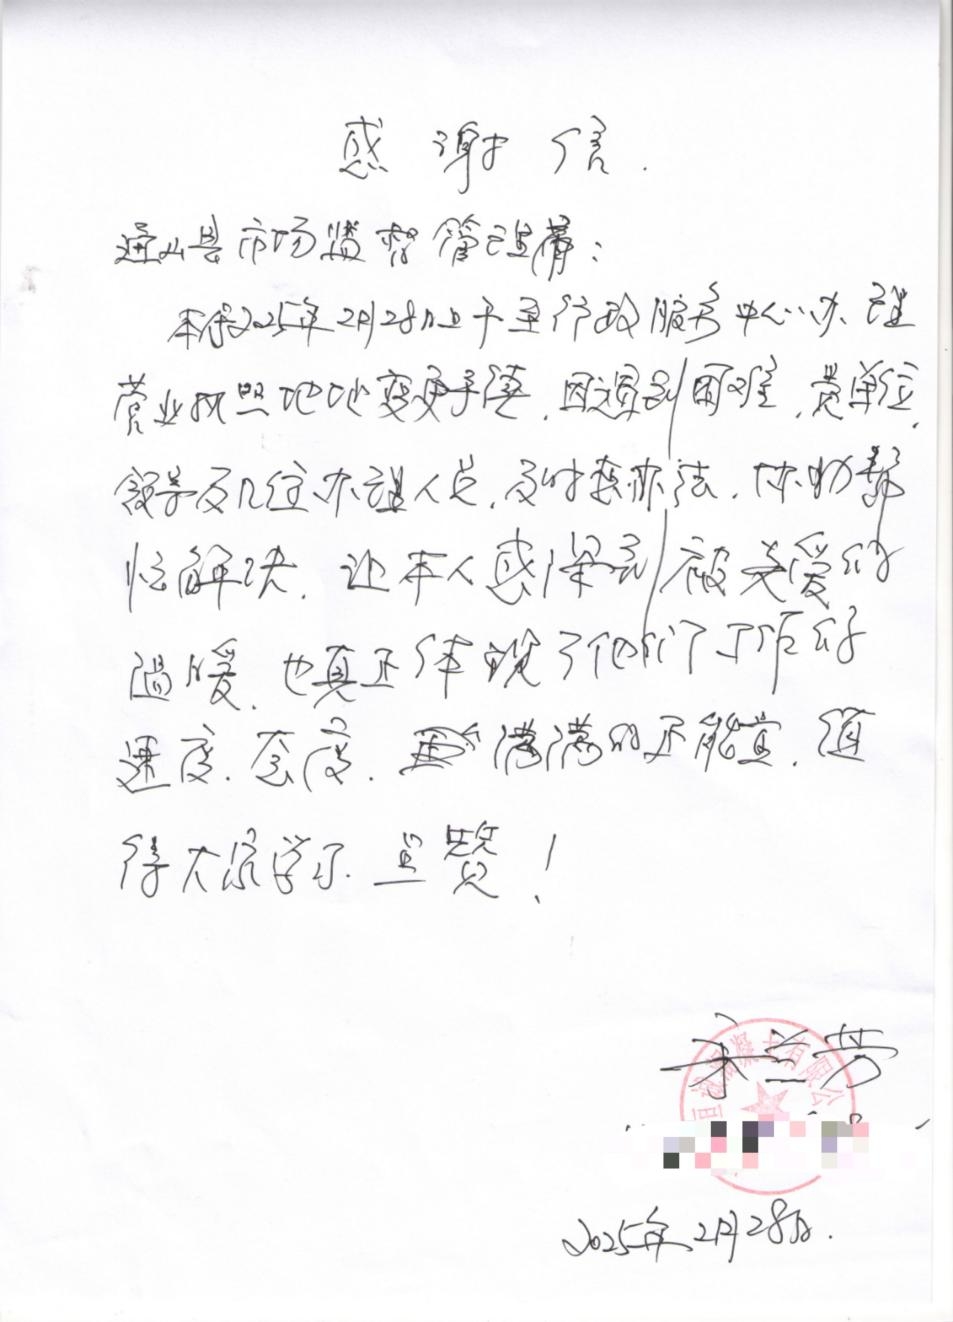 感谢信.
通山县市场监督管理局:
本人2025年2月28日上午至行政服务中心办理
营业执照地址变更手续,因遇到困难,贵单位
领导及几位办理人员,及时想办法,协助帮
忙解决,让本人感深到被关爱的
温暖,也真正体现了他们工作好
速度、态度,满满的正能量,值
得大家学习点赞!
宋兰芳
混凝土有限公
2025年2月28日.